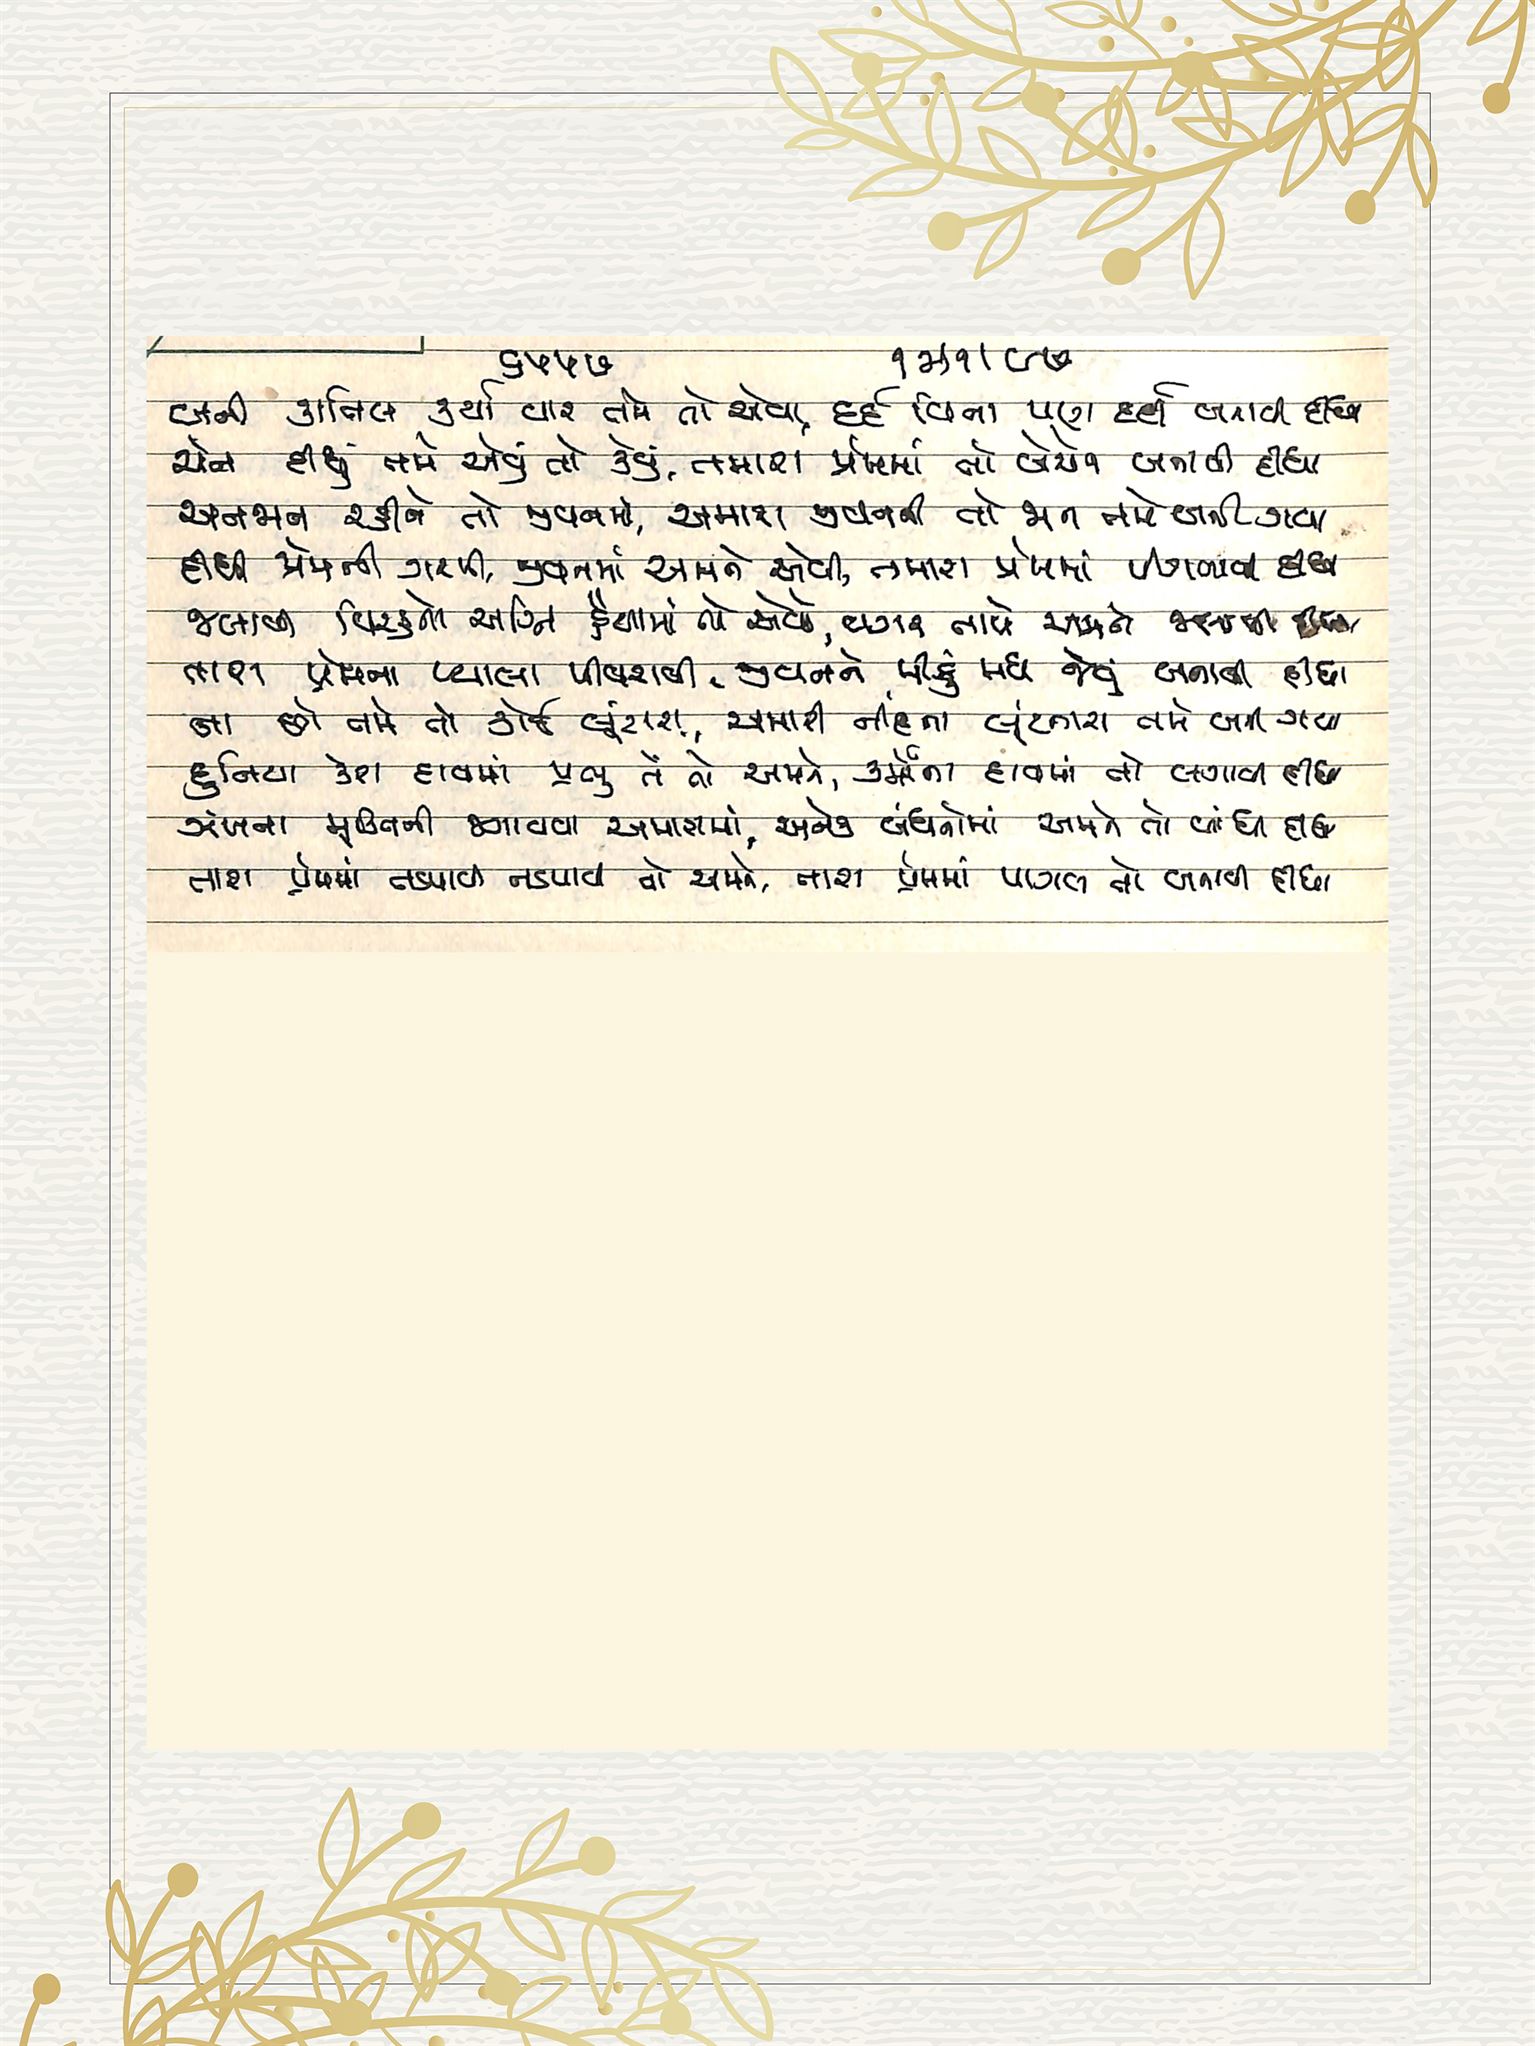 ૬૫૫૭ ૧૭/૧/૯૭
બની કાતિલ કર્યા વાર તમે તો એવા, દર્દ વિના પણ દર્દી બનાવી દીધા
ચેન દીધું તમે એવું તો કેવું, તમારા પ્રેમમાં તો બેચેન બનાવી દીધા
અનભન રહીને તો જીવનમાં, અમારા જીવનની તો ભન તમે બની ગયા
દીધી પ્રેમની ગરમી જીવનમાં અમને એવી, તમારા પ્રેમમાં પીગળાવી દીધા
જલાવી વિરહનો અગ્નિ હૈયામાં તો એવો, વગર તાપે અમને જલાવી દીધા
તારા પ્રેમના પ્યાલા પીવરાવી, જીવનને મીઠું મધ જેવું બનાવી દીધા
ના છો તમે તો કોઈ લૂંટારા, અમારી નીંદના લૂંટનારા તમે બની ગયા
દુનિયા કેરા દાવમાં પ્રભુ તેં તો અમને, કર્મોના દાવમાં તો લગાવી દીધા
ઝંખના મુક્તિની જગાવવા અમારામાં, અનેક બંધનોમાં અમને તો બાંધી દીધા
તારા પ્રેમમાં તડપાવી તડપાવી તો અમને, તારા પ્રેમમાં પાગલ તો બનાવી દીધા